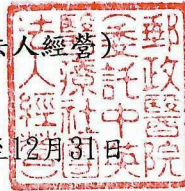 人經營)
12月31日
郵政醫院
委託中英
醫療社團
法人經營